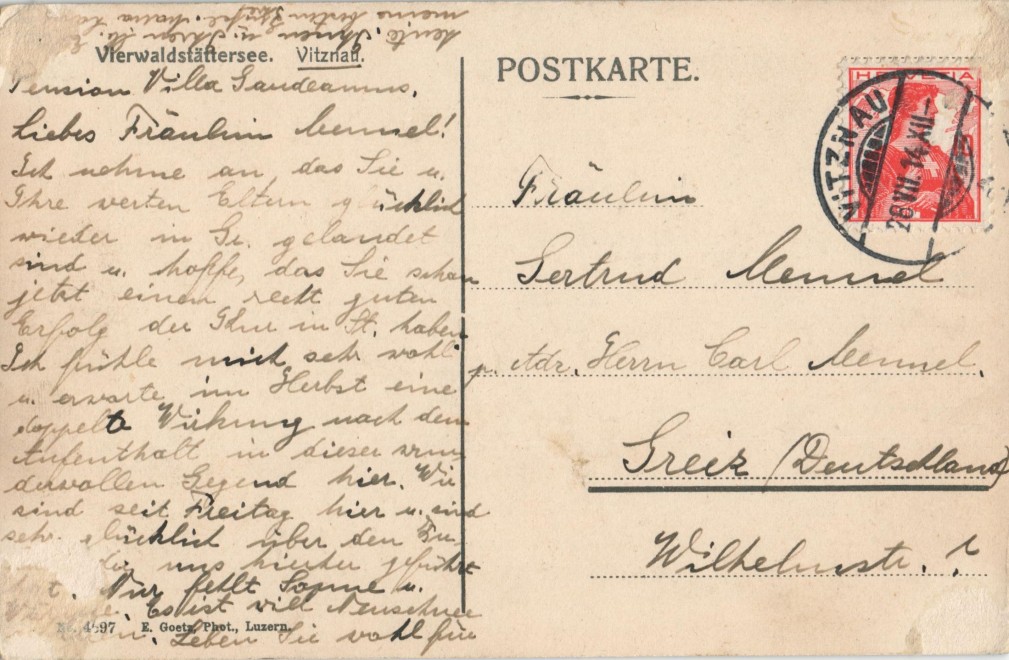 Vierwaldstättersee. Vitznau.
Pension Villa Gaudeamus.
Liebes Fräulein Mennel!
Ich nehme an, das Sie u.
Ihre werten Eltern glücklich
wieder in Gr. gelandet
sind u. hoffe, das Sie schon
jetzt einen recht guten
Erfolg der Khur in St. haben
Ich fühle mich sehr wohl
u. erwarte im Herbst eine
doppelte Wirkung nach dem
Aufenthalt in dieser wun
dervollen Gegend hier. Wir
sind seit Freitag hier u. sind
sehr glücklich über den
uns hierher geführt
Nur fehlt Sonne u.
Es ist viel Neuschnee
Leben Sie wohl für
heute. Ihnen u. Ihren
meine
E. Goetz, Phot., Luzern.
POSTKARTE.
HELVETIA
VITZNAU
28 VII. 14 XII-
Fräulein
Gertrud Mennel
p. Adr. Herrn Carl Mennel.
Greiz (Deutschland)
Wilhelmstr. ?